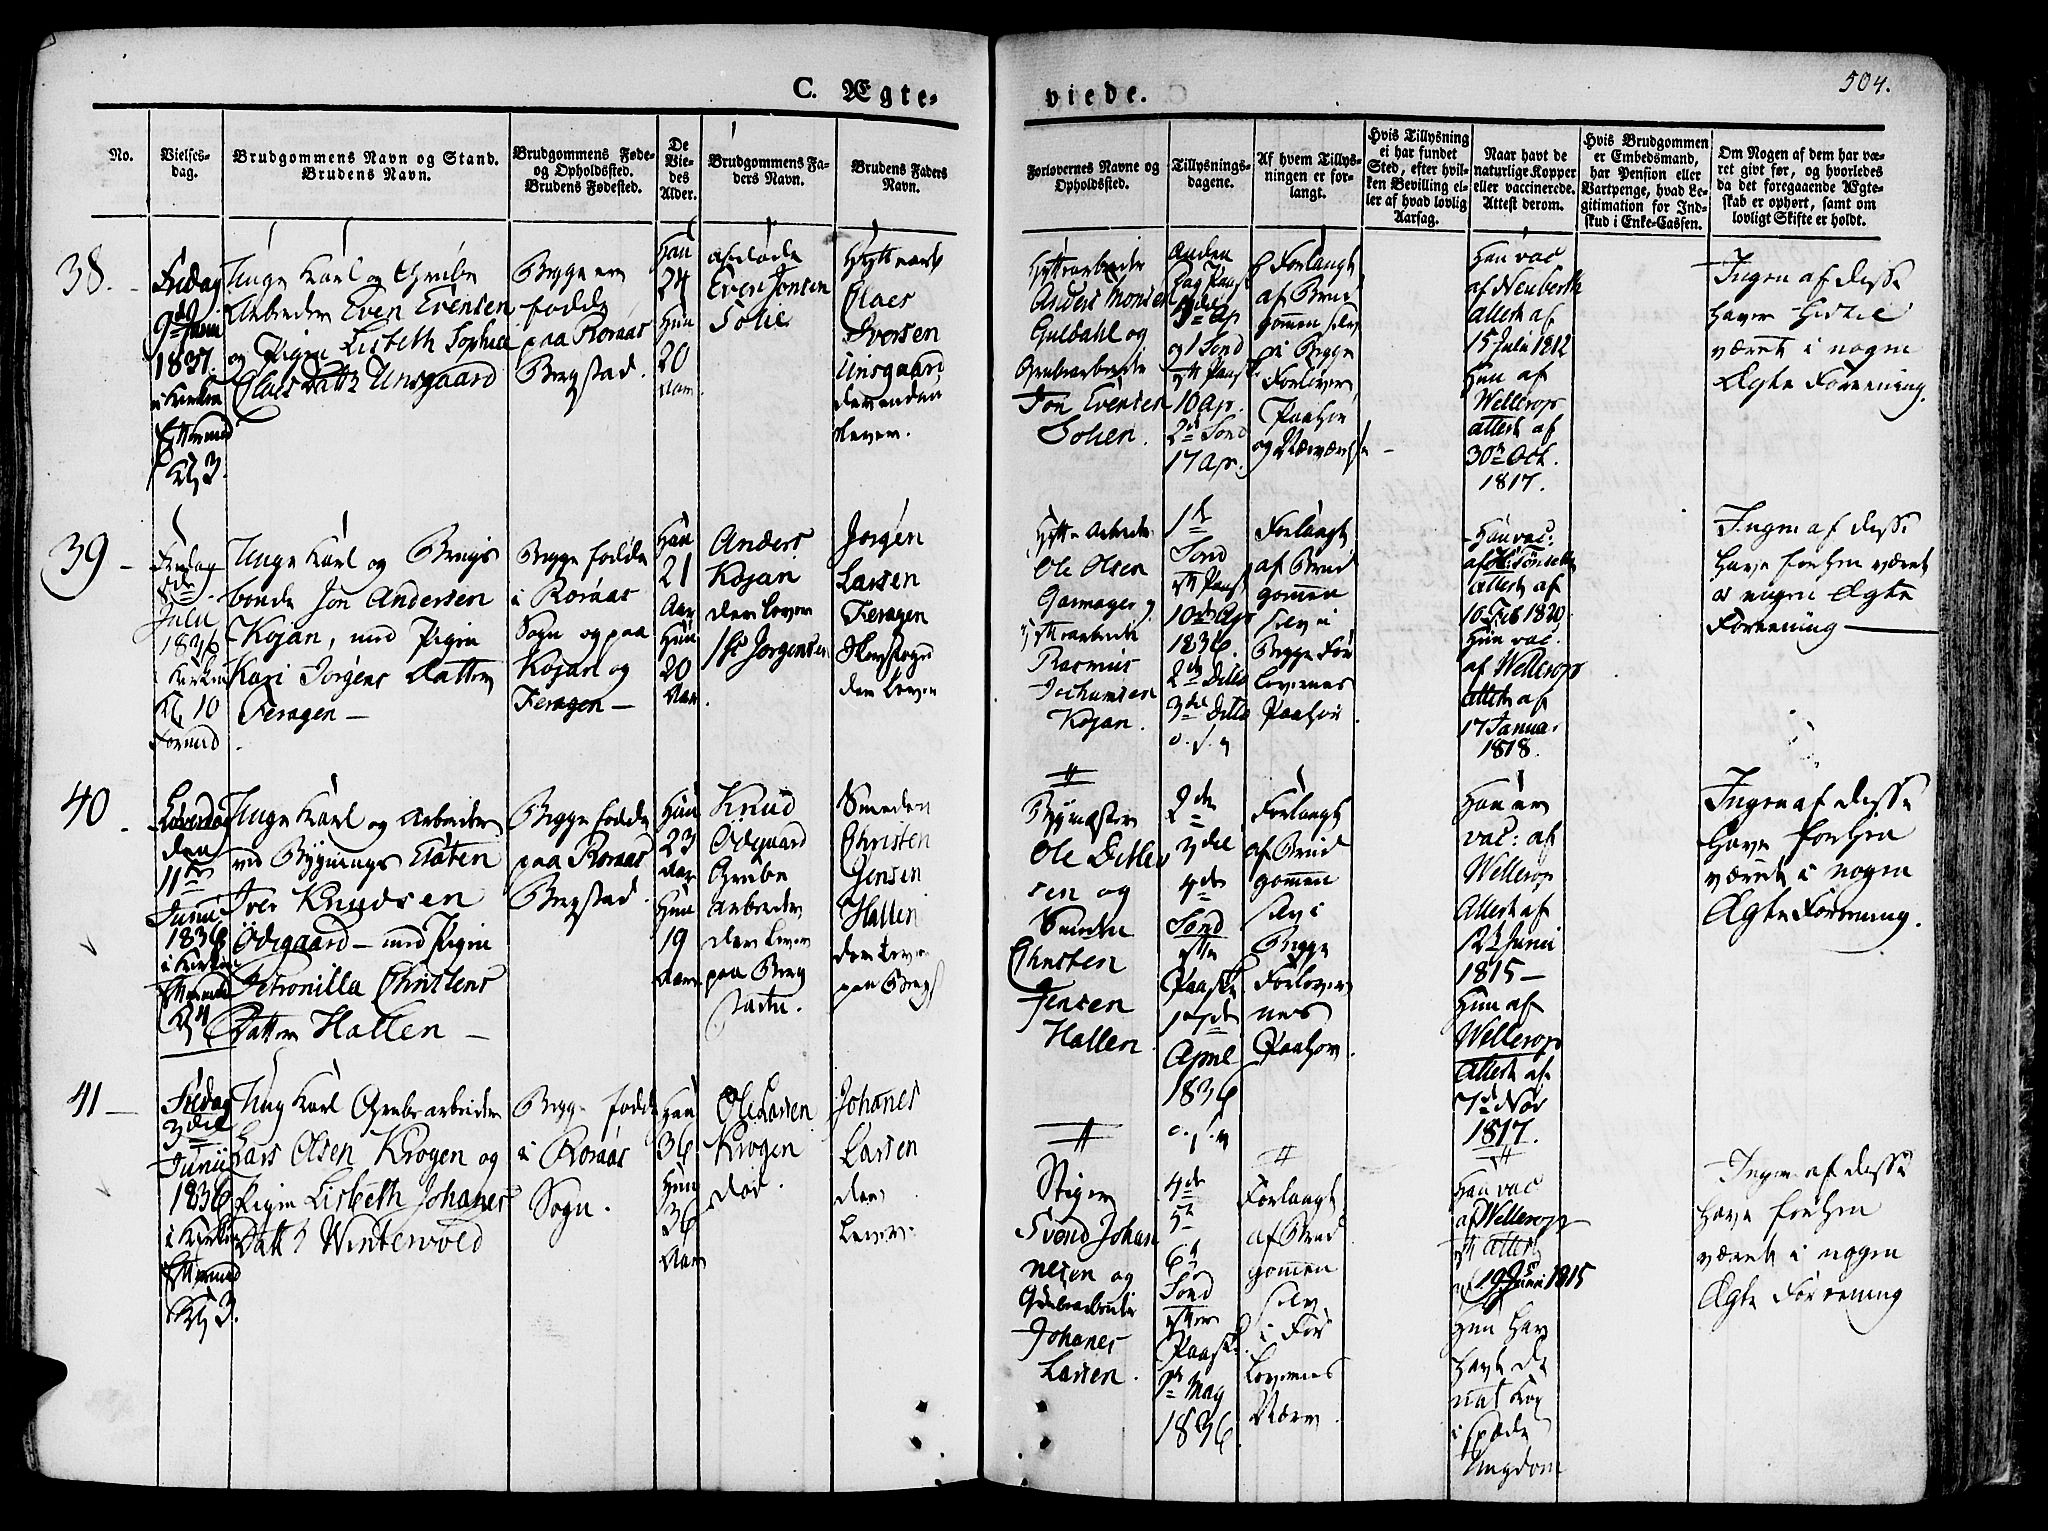 504.
C. Ægte-
viede.
No.
Vielses-
dag.
Brudgommens Navn og Stand.
Brudens Navn.
Brudgommens Føde-
og Opholdssted.
Brudens Fødested.
De
Vie-
des
Alder.
Brudgommens Fa-
ders Navn.
Brudens Faders
Navn.
Forlovernes Navne og
Opholdssted.
Tillysnings-
dagene.
Af hvem Tillys-
ningen er for-
langt.
Hvis Tillysning
ei har fundet
Sted, efter hvil-
ken Bevilling el-
ler af hvad lovlig
Aarsag.
Naar havt de
naturlige Kopper
eller vaccinerede.
Attest derom.
Hvis Brudgommen
er Embedsmand,
har Pension eller
Vartpenge, hvad Le-
gitimation for Ind-
skud i Enke-Cassen.
Om Nogen af dem har væ-
ret givt før, og hvorledes
da det foregaaende Ægte-
skab er ophørt, samt om
lovligt Skifte er holdt.
38.
Fredag
1837.
i Kirken
Kl 3.
Unge Karl og Grube
Arbeider Even Evensen
og Pigen Lisbeth Sophia
Olaes Datter Unsgaard
Begge ere
fødde
paa Roraas
Bergstad.
Han
24
Hun
20
Aar.
afdøde
Even Jonsen
Olaes
Iversen
Unsgaard
Lever.
Hyttearbeider
Anders Monsen
Guldahl og
Grubearbeider
Jon Evensen
Solien.
Anden
Dag Paask
og 1 Sønd
10 Ap.
2den Sønd
17 Ap.
Forlangt
af Brud
gommen selv
i Begge
Forlover
Paahør
og Nærværelse
Han vac
af Neuberth
Attest af
15 Julii 1812
Hun af
Wellerop
attest af
30te Oct.
1817.
Ingen af disse
haver hidtil
været i nogen
Ægte Forening.
39
Fredag
8de
Julii
1836
i Kirken
Kl 10
Formid
Unge Karl og Brugs
bonde Jon Andersen
Kojan, med Pigen
Kari Jørgens Datter
Feragen
Begge fødde
i Roraas
Sogn og paa
Kojan og
Feragen
Han
21
Aar
Hun
20
Aar
Anders
Kojan
der Lever
Jørgen
Larsen
Feragen
der Lever
Hytte Arbeider
Ole Olsen
Hyttearbeider
Rasmus
Jochumsen
Kojan.
1ste
Sønd
eft Paask
10de Ap
1836.
2den Ditto
3die Ditto
Forlangt
af Brud
gommen
selv i
Begge For
lovernes
Paahør
Han vac:
Attest af
10 Feb 1820.
Hun vac.
af Wellerop
Attest af
17 Januar
1818.
Ingen af disse
have forhen været
i nogen Ægte
Forening
40
Løverdag
den
11te
Junii
1836
i Kirken
Kl 4
Unge Karl og Arbeider
ved Bygnings Etaten
Iver Knudsen
Ødegaard med Pigen
Petronilla Christens
Datter Hallen
Begge fødde
paa Roraas
Bergstad.
Han
23
Aar
Hun
19
Aar
Knud
Ødegaard
Grube
Arbeider
der Lever
paa Berg
staden.
Smeden
Christen
Jensen
Hallen
der Lever
paa Bergs
Bygmester
Ole Ditlev
sen og
Smeden
Christen
Jensen
Hallen.
2den
3die
4de
Sønd
efter
Paaske
17de
April
1836
Forlangt
af Brud
gommen
selv i
Begge
Forlover
nes
Paahør.
Han er
vac: af
Wellerop
Attest af
12te Junii
1815
Hun af
Wellerop
Attest af
7de Nov
1817.
Ingen af disse
have forhen
været i nogen
Ægte Forening.
41
Fredag
3die
Junii
1836
i Kirken
Kl 3.
Ung Karl Grubearbeider
Lars Olsen Krogen og
Pigen Lisbeth Johanes
Datter Wintervold
Begge fødde
i Roraas
Sogn.
Han
36
Hun
36
Aar
Ole Larsen
Krogen
død.
Johanes
Larsen
der
Lever.
Stiger
Svend Johan
nesen og
Grubearbeider
Johanes
Larsen.
4de
5te
6te
Sønd
efter
Paaske
1ste May
1836.
Forlangt
af Brud
gommen
selv
i For
lovernes
Nærv
Han vac
af Wellerop
attest
af 19 Juni 1815
Hun har
havt de
nat Kop
i spæde
Ungdom
Ingen af disse
have forhen
været i nogen
Ægte Forening